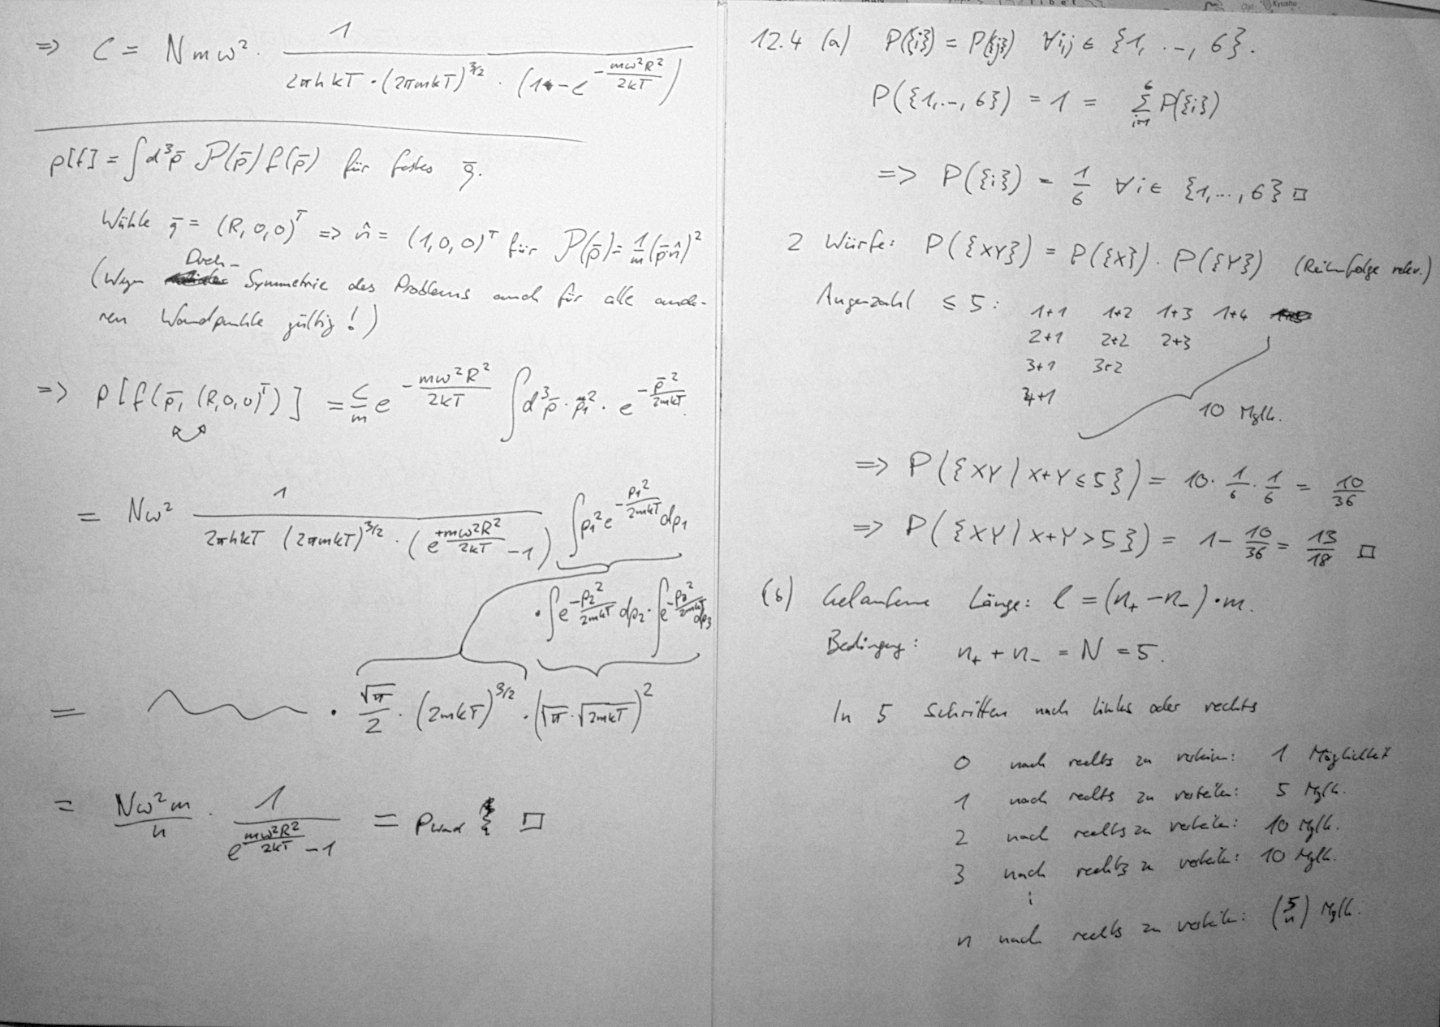 => C = N m ω² · 1 / (2πhkT · (2πmkT)^{3/2} · (1 - e^{-mω²R²/2kT}))
p[f] = ∫d³p̄ 𝒫(p̄) f(p̄) für festes q̄.
Wähle q̄ = (R,0,0)^T => n̂ = (1,0,0)^T für 𝒫(p̄) = 1/m (p̄n̂)²
(Wegen Dreh-Symmetrie des Problems auch für alle ande-
ren Wandpunkte gültig!)
=> p[f(p̄, (R,0,0)^T)] = C/m e^{-mω²R²/2kT} ∫d³p̄ · p₁² · e^{-p̄²/2mkT}.
= Nω² 1 / (2πhkT (2πmkT)^{3/2} · (e^{+mω²R²/2kT} - 1)) ∫p₁² e^{-p₁²/2mkT} dp₁
· ∫e^{-p₂²/2mkT} dp₂ · ∫e^{-p₃²/2mkT} dp₃
= · √π/2 · (2mkT)^{3/2} · (√π · √2mkT)²
= Nω²m/h · 1 / (e^{mω²R²/2kT} - 1) = p_Wand □
12.4 (a) P({i}) = P({j}) ∀i,j ∈ {1, ..., 6}.
P({1,..., 6}) = 1 = Σ_{i=1}^{6} P({i})
=> P({i}) = 1/6 ∀i ∈ {1,..., 6} □
2 Würfe: P({XY}) = P({X}) · P({Y}) (Reihenfolge relev.)
Augenzahl ≤ 5: 1+1 1+2 1+3 1+4
2+1 2+2 2+3
3+1 3+2
4+1
10 Mglk.
=> P({XY | X+Y ≤ 5}) = 10 · 1/6 · 1/6 = 10/36
=> P({XY | X+Y > 5}) = 1 - 10/36 = 13/18 □
(b) Gelaufene Länge: l = (n₊ - n₋) · m.
Bedingung: n₊ + n₋ = N = 5.
In 5 Schritten nach links oder rechts
0 nach rechts zu verteilen: 1 Möglichkeit
1 nach rechts zu verteilen: 5 Mglk.
2 nach rechts zu verteilen: 10 Mglk.
3 nach rechts zu verteilen: 10 Mglk.
⋮
n nach rechts zu verteilen: (5 n) Mglk.